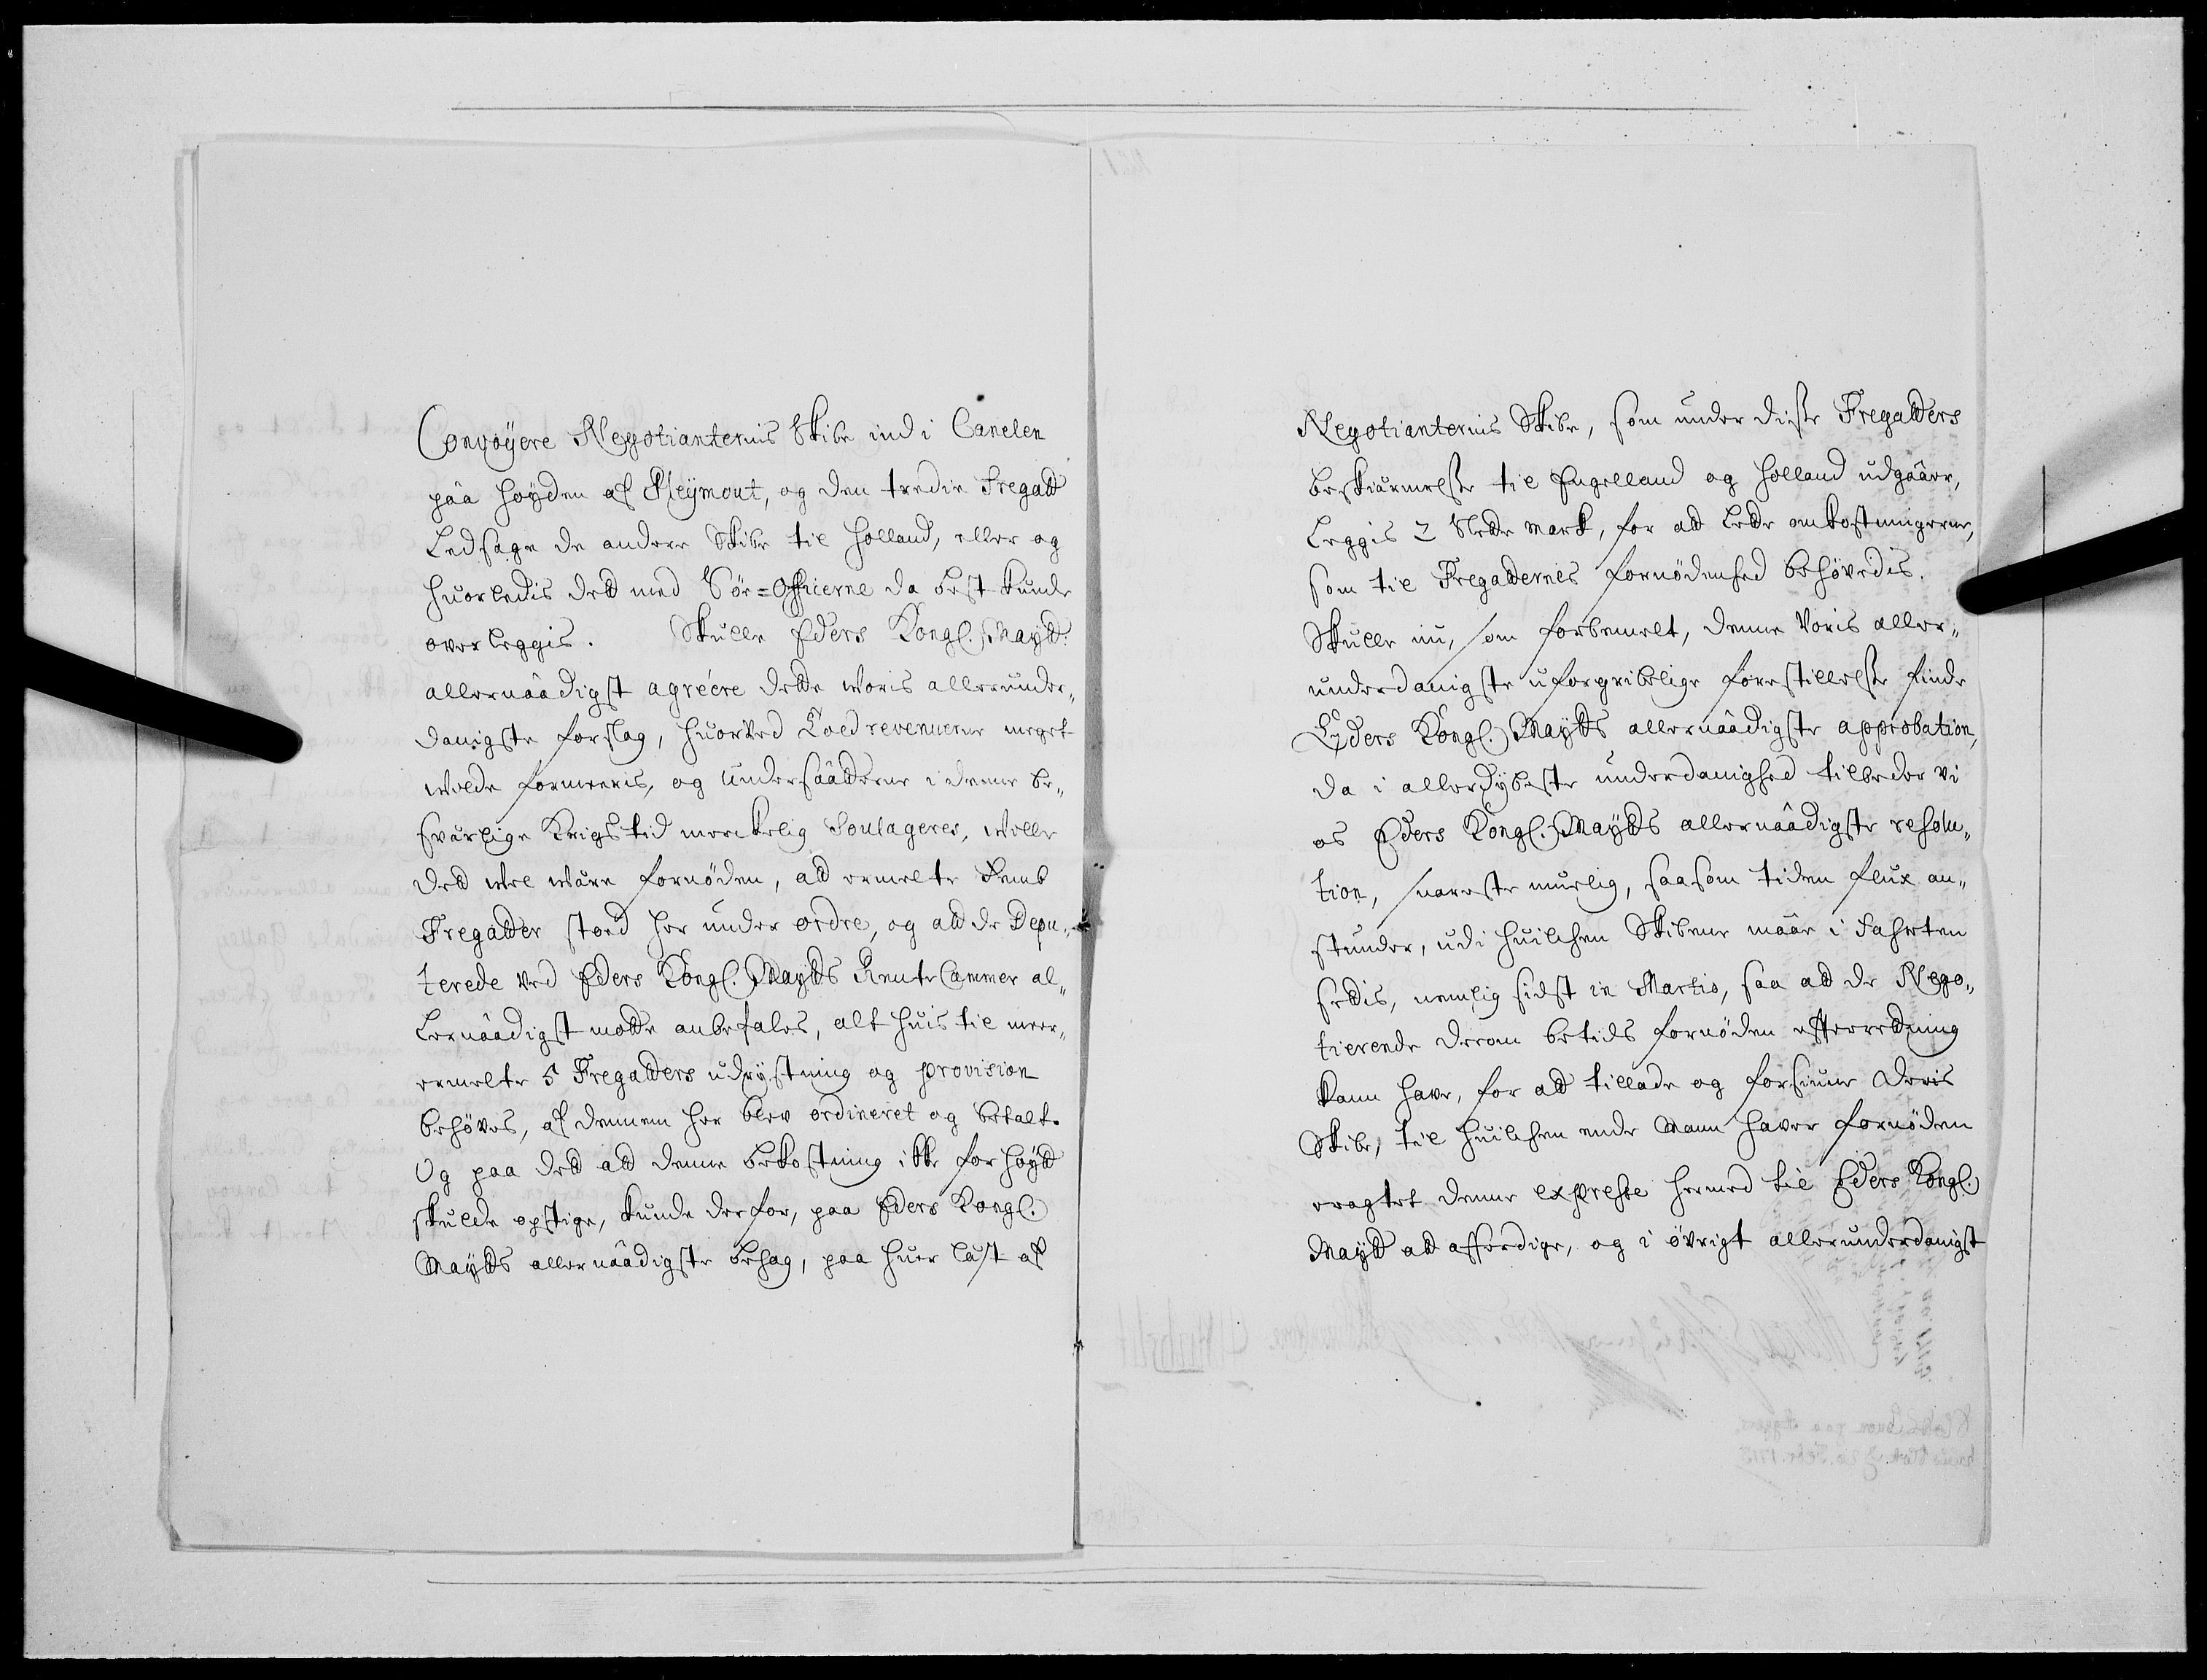 Convoyere Negotianternis Skibe ind i Canelen
paa höyden af Pleÿmout, og den tredie Fregatt
Ledsage de andere Skibe til Holland, eller og
huorledis det med Söe=Officierne da best kunde
overleggis. Skulle Eders Kongl. Maÿtt:
allernaadigst agréere dette woris allerunder„
danigste forslag, huorved Toldrevenuerne meget
wilde formeeris, og Undersaatterne i denne be„
sværlige Krigstid merckelig Soulageres, wille
det wel wære fornöden, at ermelte Femb
Fregatter stoed her under ordre, og at de Depu„
terede ved Eders Kongl. Maÿtts RenteCammer al„
lernaadigst motte anbefales, alt huis til meer„
ermelte 5 Fregatters udrÿstning og provision
behöves, af dennem her blev ordineret og betalt.
Og paa det at denne bekostning ikke for höyt
skulde opstige, kunde derfor, paa Eders Kongl.
Maÿtts allernaadigste behag, paa huer Læst af
Negotianternis Skibe, som under disse Fregatters
beskiermelse til Engelland og Holland udgaaer,
Leggis 2 Slette Mark, for at lette omkostningerne,
som til Fregatternes fornödenhed behövedis.
Skulle nu, som forbemelt, denne Voris aller„
underdanigste uforgribelige forestillelse finde
Eders Kongl. Maÿtts allernaadigste approbation,
da i allerdÿbeste underdanighed tilbeder vi
os Eders Kongl. Maÿtts allernaadigste resolu„
tion, snareste muelig, saasom tiden flux an„
stunder, udi huilchen Skibene maae i Fahrten
settis, nemlig sidst in Martio, saa at de Nego„
tierende derom betids fornöden efterretning
kann have, for at tillade og forsiune deris
Skibe, til huilchen ende Mann haver fornöden
eragtet denne expresse hermed til Eders Kongl.
Maÿtt at affærdige, og i övrigt allerunderdanigst